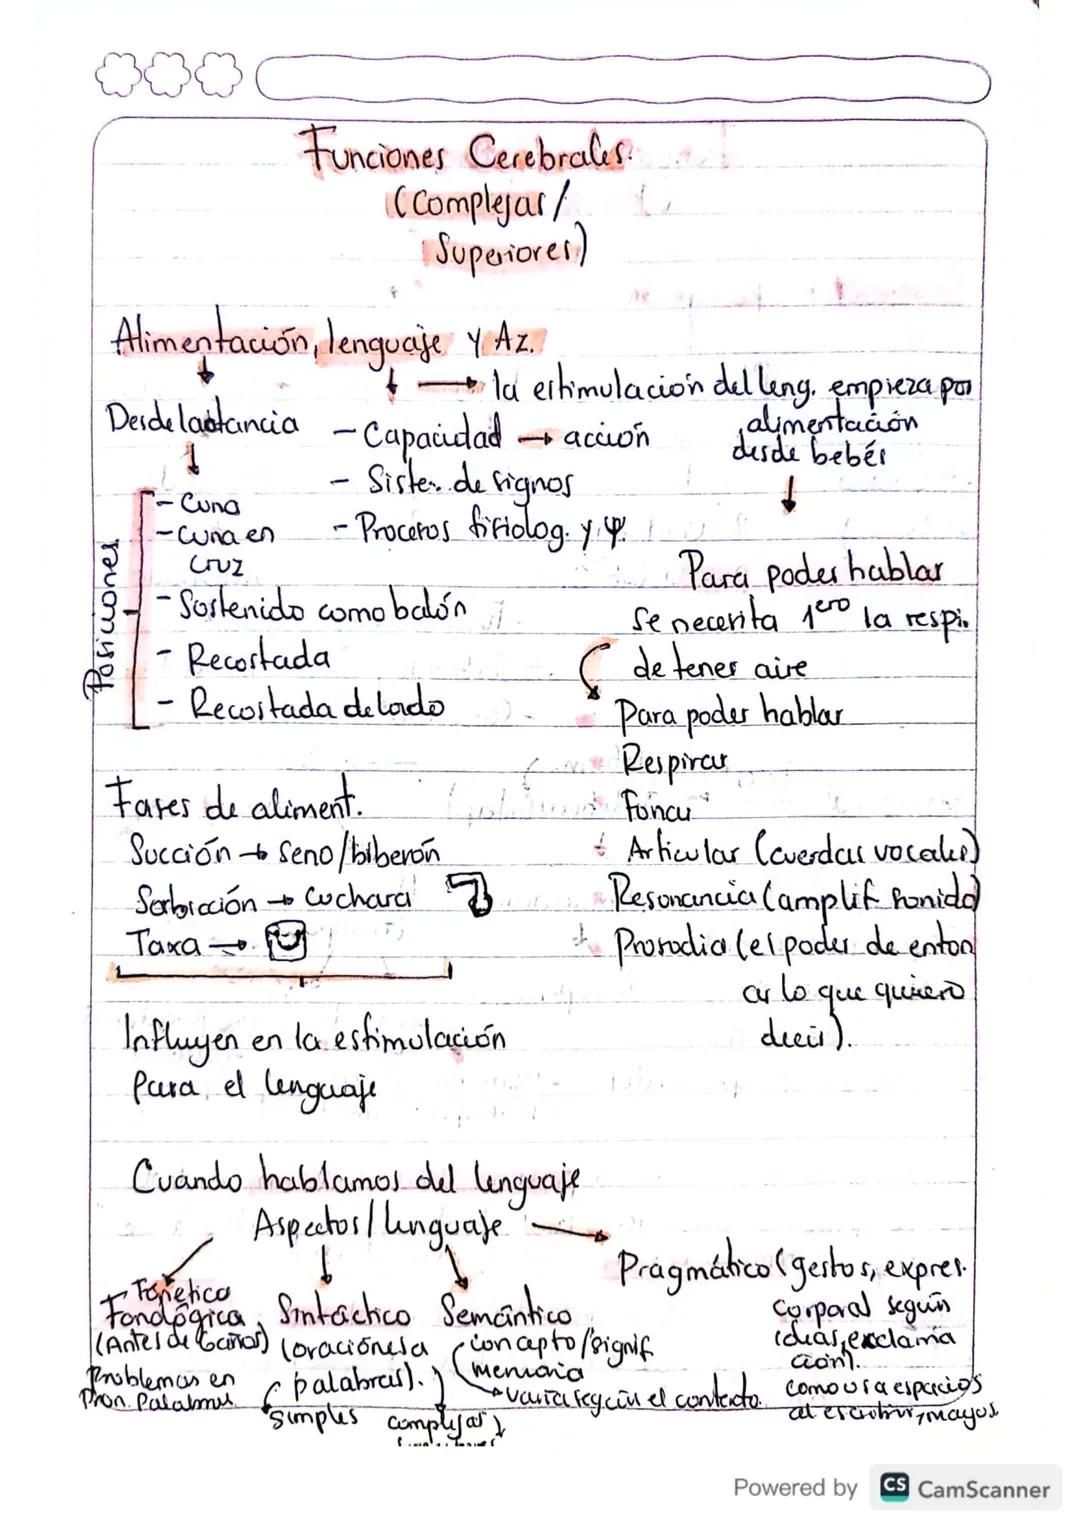 Funciones Cerebrales.
(Complejas/
Superiores)
Alimentación, lenguaje y Az.
→ la estimulación del leng. empieza por
alimentación
desde bebés
Desde lactancia
- Capacidad → acción
- Siste. de signos
- Procesos fisiolog. y Ψ.
Posiciones
- Cuna
- Cuna en
cruz
- Sostenido como balón
- Recostada
- Recostada de lado
Para poder hablar
se necesita 1ero la respi.
de tener aire
Para poder hablar
Respirar
Articular (cuerdas vocales)
Resonancia (amplif. sonido)
Prosodia (el poder de enton
ar lo que quiero
decir).
Fases de aliment.
Succión → seno/biberón
Sorbicción → Cuchara
Taxa →
Influyen en la estimulación
para el lenguaje
Cuando hablamos del lenguaje
Aspectos/lenguaje
Fonético
Fonológica
(Antes de 6 años)
Problemas en
Pron. Palabras
Sintáctico
(oraciones a
palabras).
simples
complejas
Semántico
concepto/signif.
memoria
varia según el contexto.
Pragmático (gestos, expres.
corporal según
ideas, exclama
ción).
como usa espacios
al escribir, mayus.
Powered by CS CamScanner